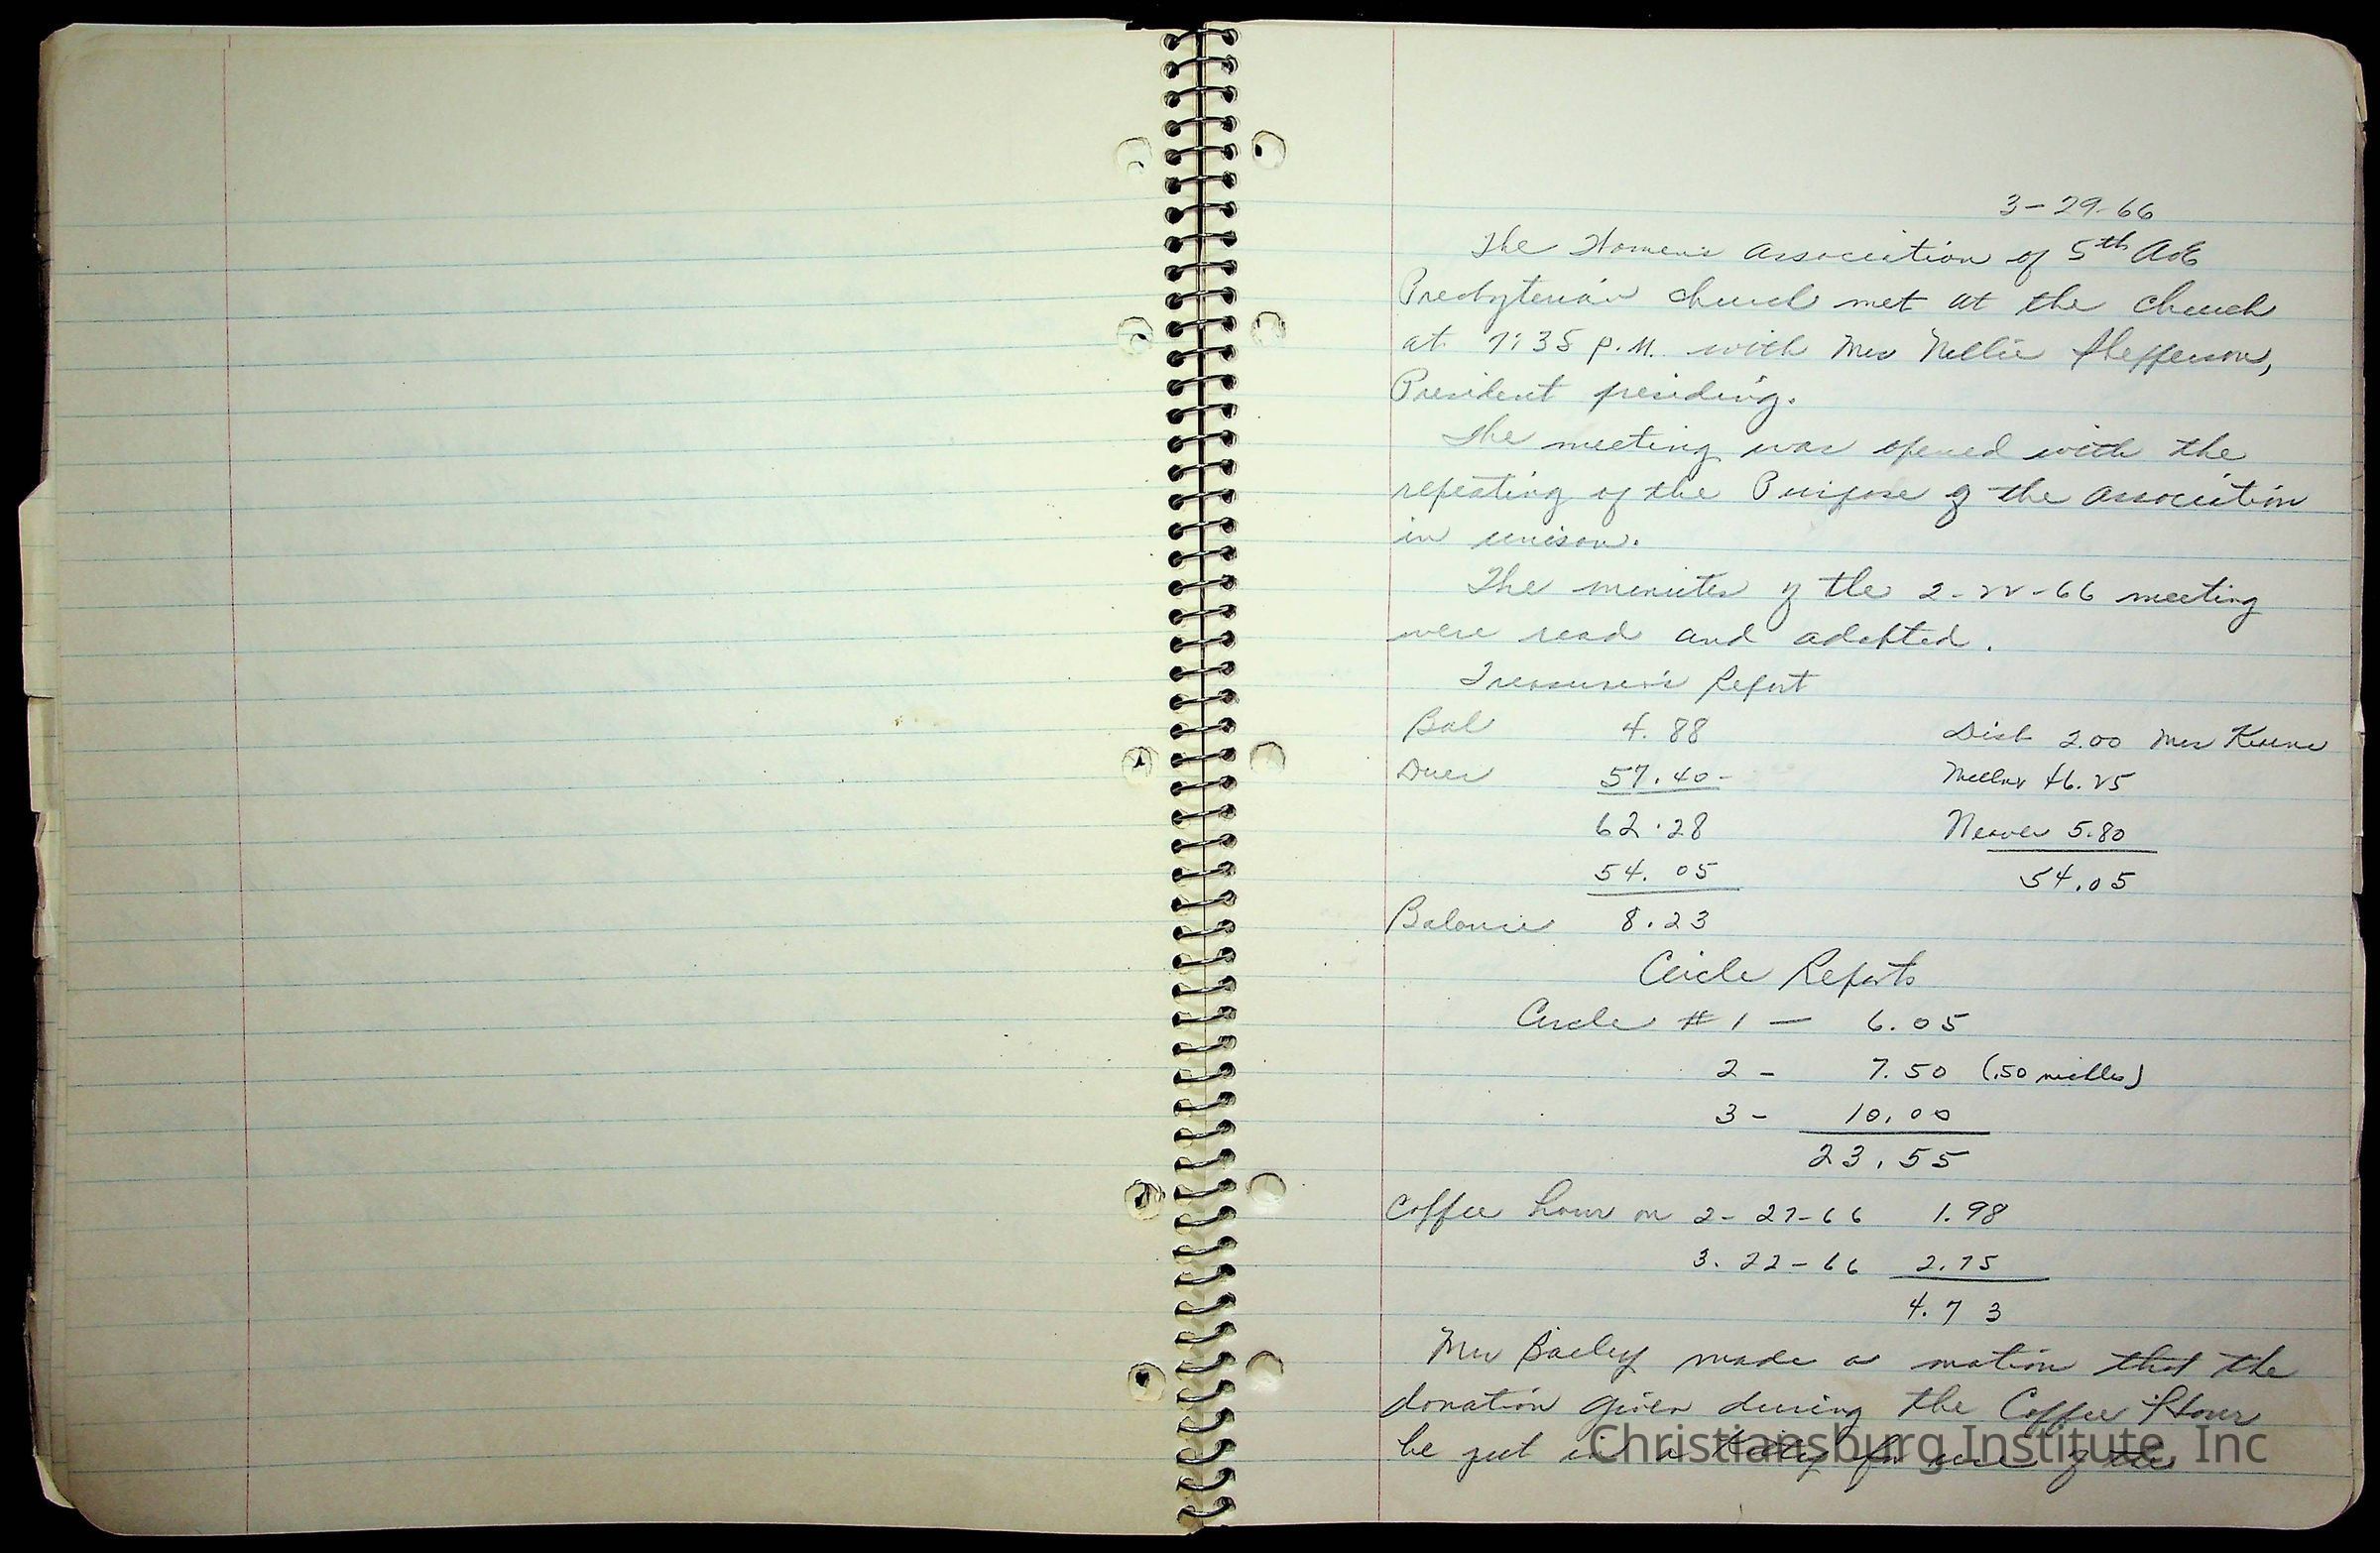 3-29-66
The Women's Association of 5th Ave
Presbyterian church met at the church
at 7:35 P.M. with Mrs Nellie Shepperson,
President presiding.
The meeting was opened with the
repeating of the Purpose of the association
in unison.
The minutes of the 2-22-66 meeting
were read and adopted.
Treasurer's Report
Bal 4.88 Disb 2.00 Mrs
Dues 57.40 46.25
62.28 5.80
54.05 54.05
Balance 8.23
Circle Reports
Circle #1 - 6.05
2 - 7.50 (.50
3 - 10.00
23.55
Coffee hour on 2-27-66 1.98
3-22-66 2.75
4.73
Mrs Bailey made a motion that the
donation given during the Coffee Hour
be put in a Kitty for use of the
Christiansburg Institute, Inc